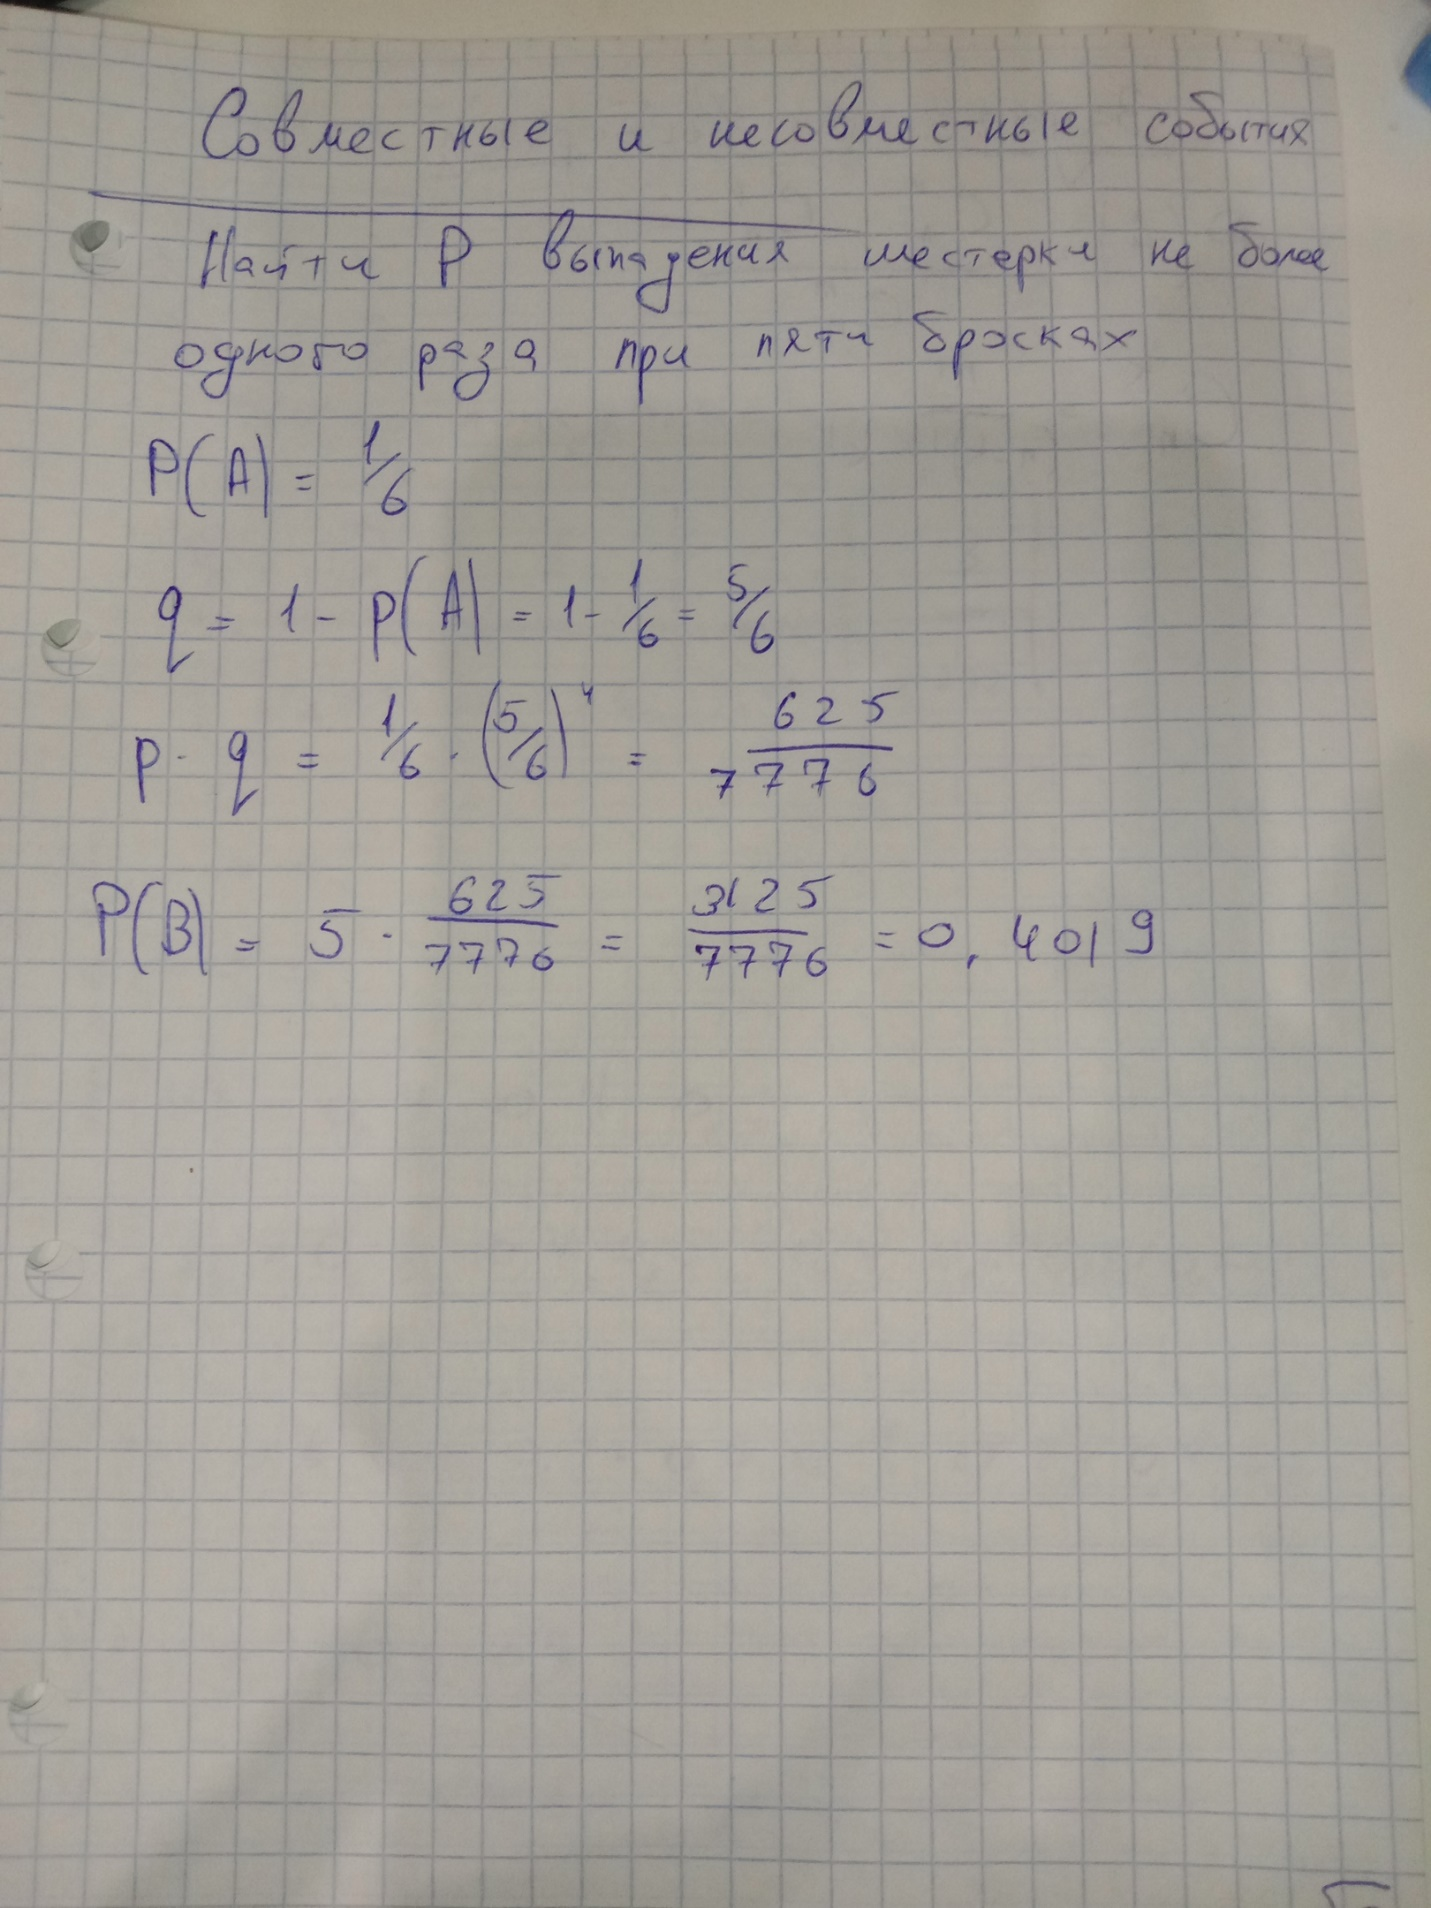 Совместные и несовместные события
Найти P выпадения шестерки не более
одного раза при пяти бросках
P(A) = 1/6
q = 1 - P(A) = 1 - 1/6 = 5/6
p · q = 1/6 · (5/6)⁴ = 625/7776
P(B) = 5 · 625/7776 = 3125/7776 = 0,4019